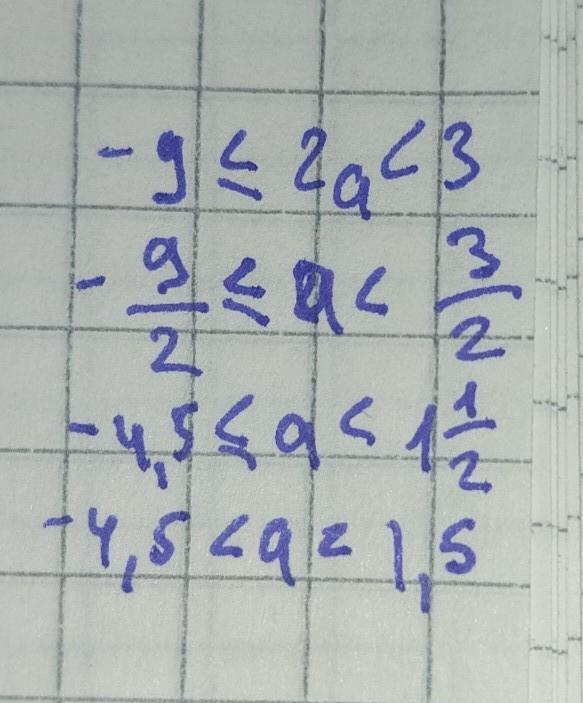 -9 ≤ 2a < 3
-9/2 ≤ a < 3/2
-4,5 ≤ a < 1 1/2
-4,5 < a < 1,5